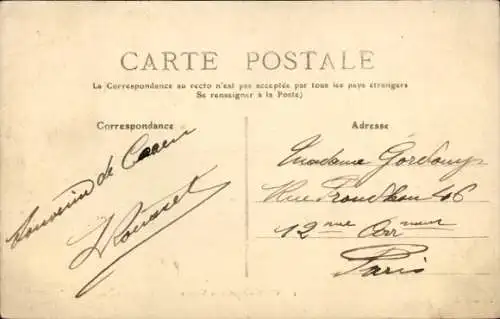 CARTE POSTALE
La Correspondance au recto n'est pas acceptée par tous les pays étrangers
Se renseigner à la Poste)
Correspondance
Adresse
Souvenir de Caen
Madame
Rue Proudhon 46
12me Arr
Paris